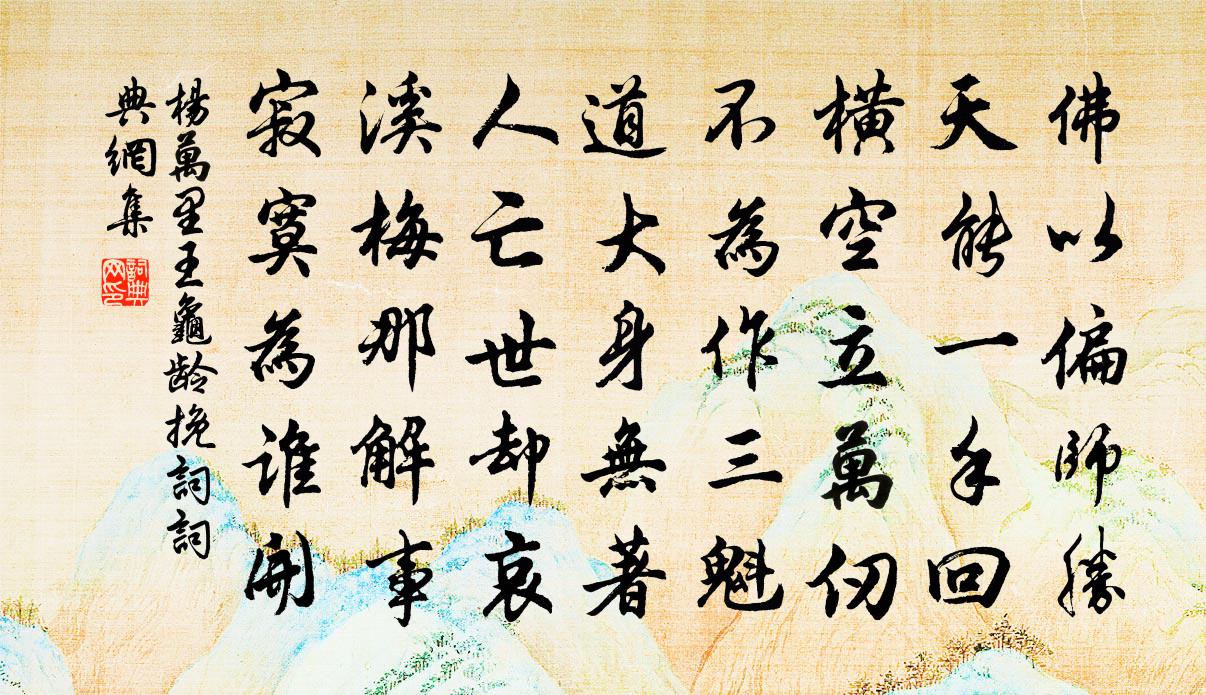 佛以偏師勝
天能一手回
橫空立萬仞
不為作三魁
道大身無著
人亡世却哀
溪梅那解事
寂寞為誰開
楊萬里王龜齡挽詞詞
典網集
詞典
网印